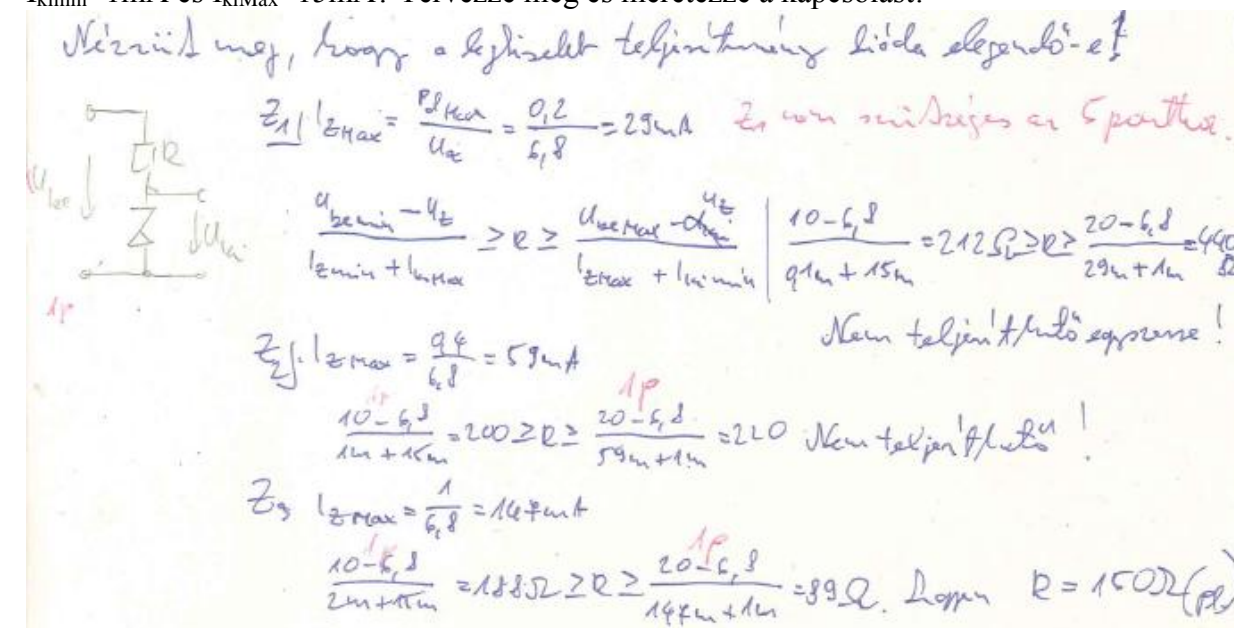 I_kimin=1mA és I_kiMax=15mA! Tervezze meg és méretezze a kapcsolást!
Nézzük meg, hogy a legkisebb teljesítmény dióda elegendő-e!
Z1/ I_ZMax = Pd Max / U_Z = 0,2 / 6,8 = 29mA Z1 nem szükséges az 5 ponthoz.
R
U_be
U_ki
1p
(U_bemin - U_Z) / (I_Zmin + I_kiMax) ≥ R ≥ (U_beMax - U_Z) / (I_ZMax + I_kimin) | (10-6,8) / (0,1m + 15m) = 212Ω ≥ R ≥ (20-6,8) / (29m+1m) = 440Ω
Nem teljesíthető egyszerre!
Z2/. I_ZMax = 0,4 / 6,8 = 59mA
1p 1p
(10-6,8) / (1m+15m) = 200 ≥ R ≥ (20-6,8) / (59m+1m) = 220 Nem teljesíthető!
Z3 I_ZMax = 1 / 6,8 = 147mA
1p 1p
(10-6,8) / (2m+15m) = 188Ω ≥ R ≥ (20-6,8) / (147m+1m) = 89Ω. Legyen R = 150Ω (pl)